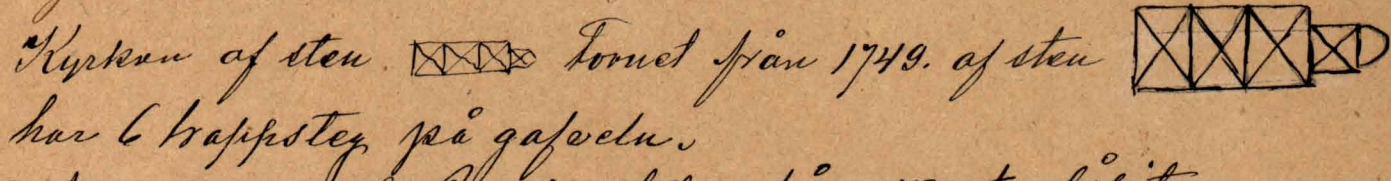 Kyrkan af sten. Tornet från 1749. af sten
har 6 trappsteg på gafveln.